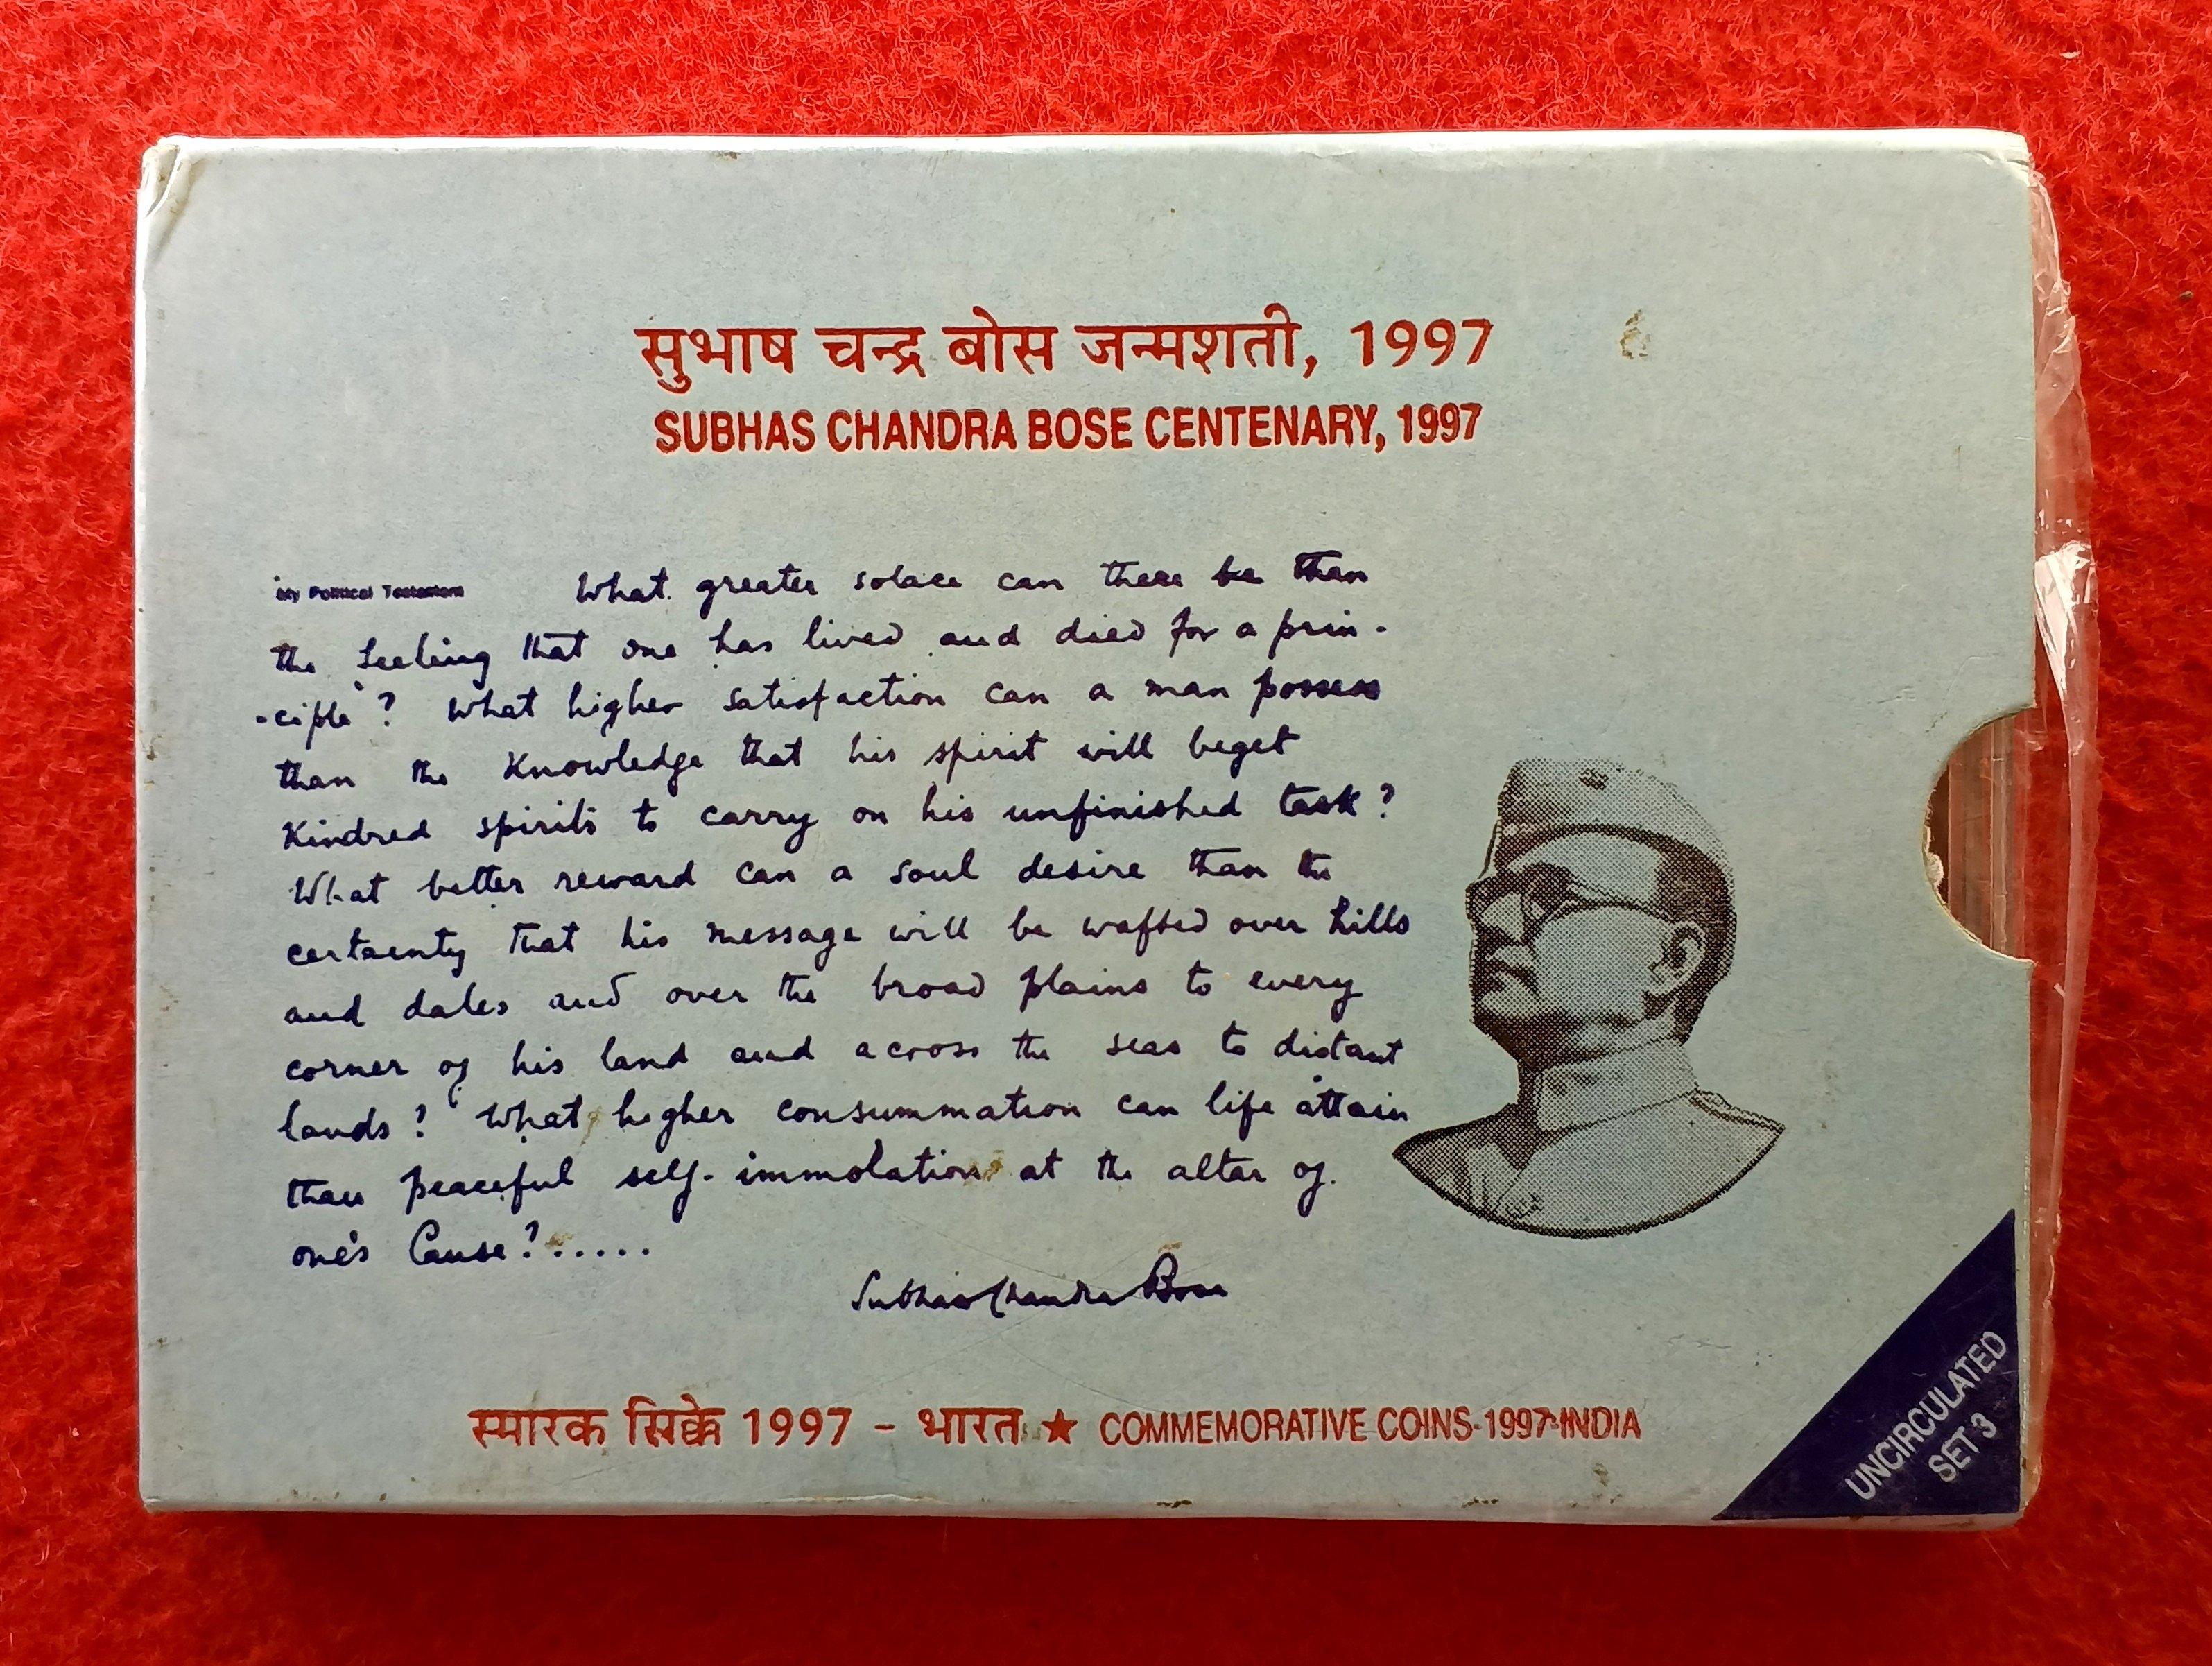 सुभाष चन्द्र बोस जन्मशती, 1997
SUBHAS CHANDRA BOSE CENTENARY, 1997
My Political Testament What greater solace can there be than
the feeling that one has lived and died for a prin-
-ciple? What higher satisfaction can a man possess
than the knowledge that his spirit will beget
kindred spirits to carry on his unfinished task?
What better reward can a soul desire than the
certainty that his message will be wafted over hills
and dales and over the broad plains to every
corner of his land and across the seas to distant
lands? What higher consummation can life attain
than peaceful self-immolation at the altar of
one's Cause?.....
Subhas Chandra Bose
स्मारक सिक्के 1997 - भारत ★ COMMEMORATIVE COINS-1997-INDIA
UNCIRCULATED
SET 3